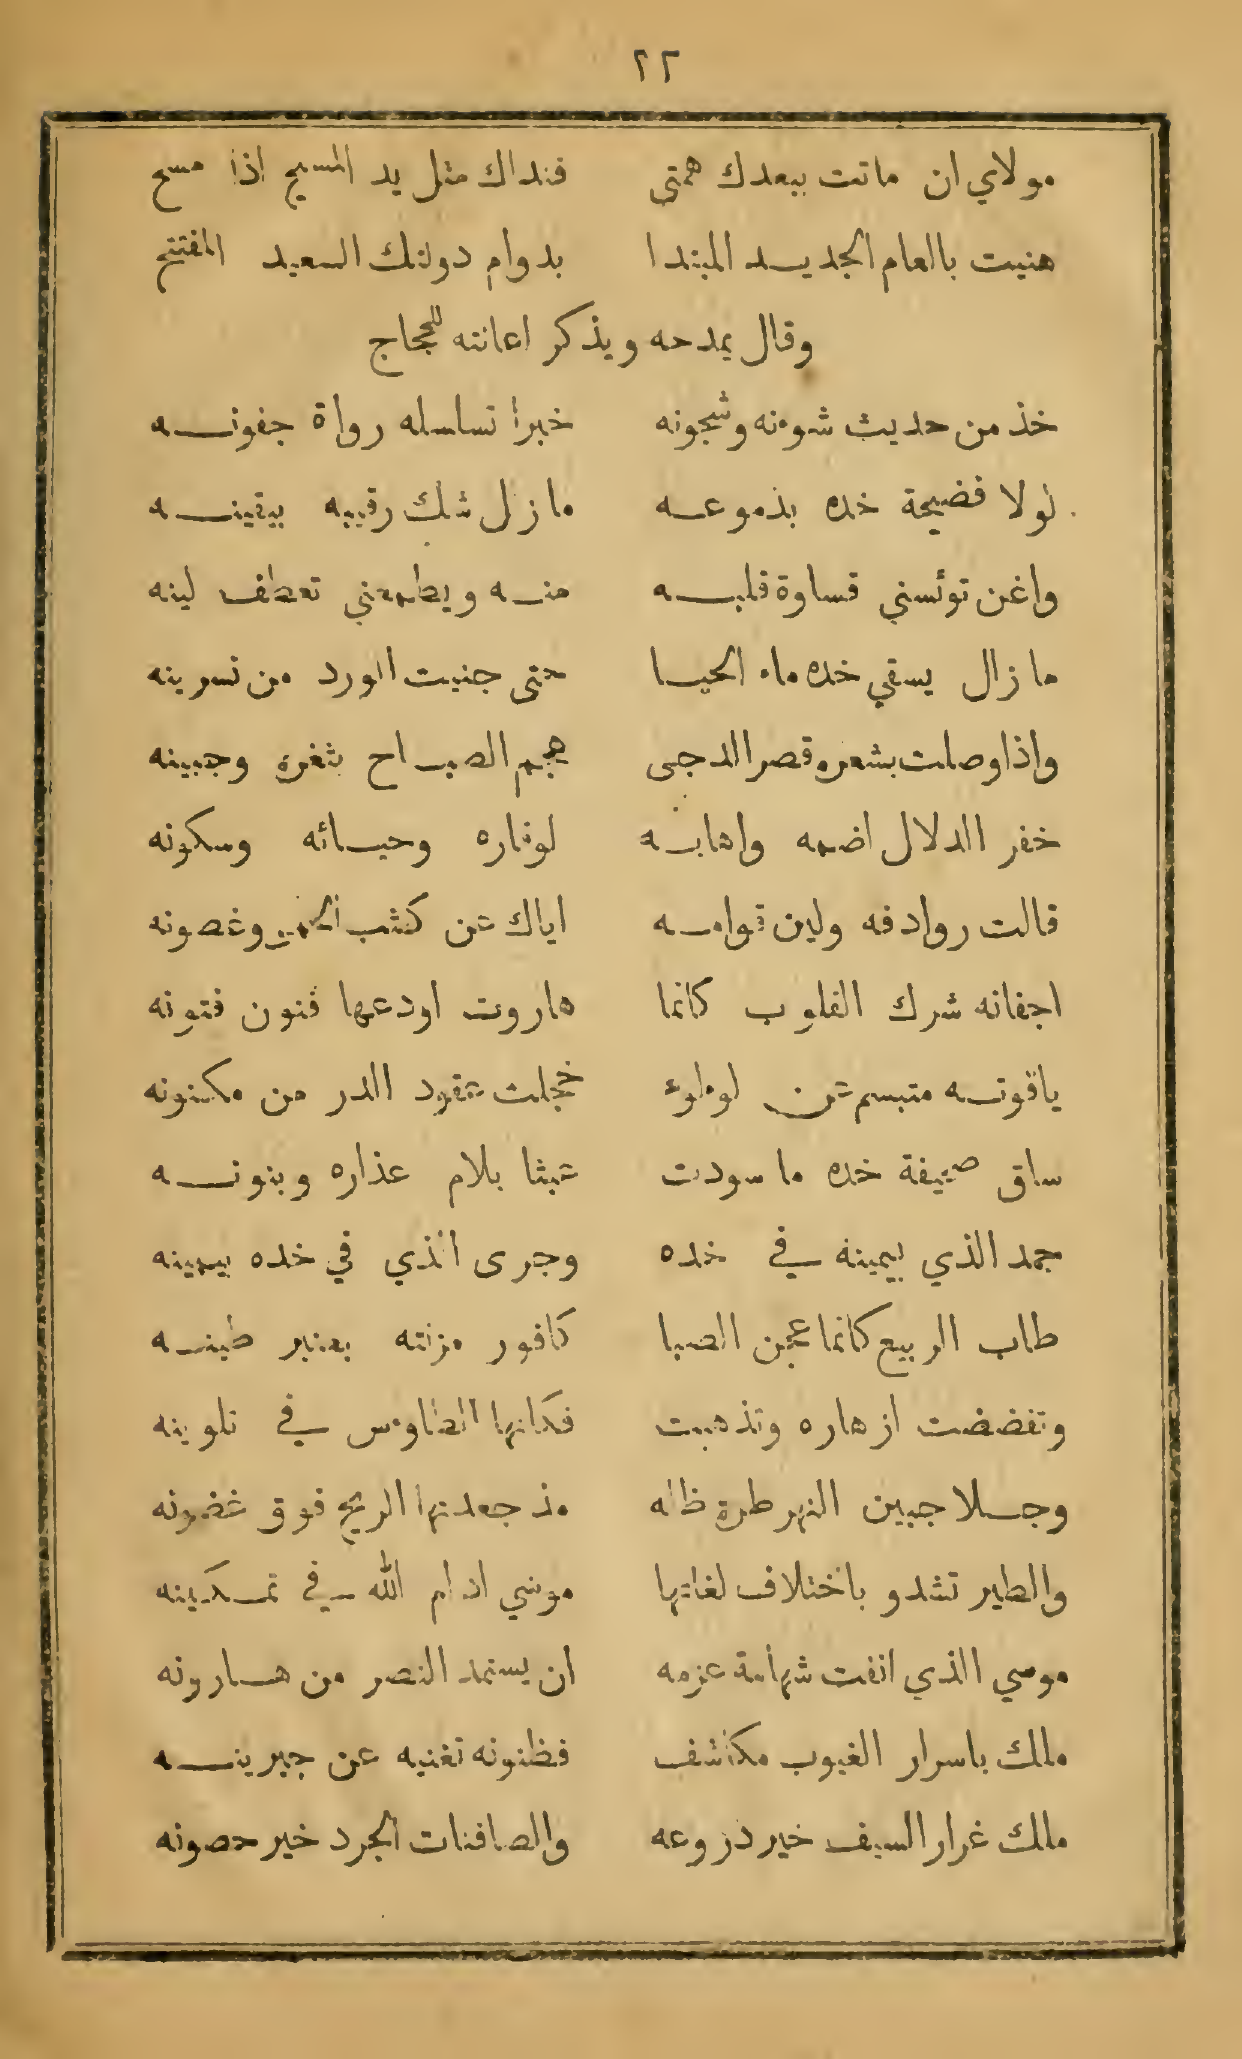 ٢٢
مولاي ان ماتت ببعدك همتي فنداك مثل يد المسيح اذا مسح
هنيت بالعام الجديد المبتدا بدوام دولتك السعيد المفتتح
وقال يمدحه ويذكر اعانته للحجاج
خذ من حديث شوءنه وشجونه خبرا تسلسله رواة جفونه
لولا فضيحة خده بدموعه ما زال شك رقيبه بيقينه
واغن توئسني قساوة قلبه منه ويطمعني تعطف لينه
ما زال يسقي خده ماء الحيا حتى جنيت الورد من نسرينه
واذا وصلت بشعره قصر الدجى هجم الصباح بثغره وجبينه
خفر الدلال اضمه واهابه لوقاره وحيائه وسكونه
قالت روادفه ولين قوامه اياك عن كثب الحمى وغصونه
اجفانه شرك القلوب كانما هاروت اودعها فنون فتونه
ياقوته متبسم عن لوءلوء خجلت عقود الدر من مكنونه
ساق صحيفة خده ما سودت عبثا بلام عذاره وبنونه
جمد الذي بيمينه في خده وجرى الذي في خده بيمينه
طاب الربيع كانما عجن الصبا كافور مزنته بعنبر طينه
وتفضضت ازهاره وتذهبت فكانها الطاوءس في تلوينه
وجلا جبين النهر طرة ظله مذ جعدتها الريح فوق غضونه
والطير تشدو باختلاف لغاتها موسي ادام الله في تمكينه
موسي الذي انفت شهامة عزمه ان يستمد النصر من هارونه
ملك باسرار الغيوب مكاشف فظنونه تغنيه عن جبرينه
ملك غرار السيف خير دروعه والصافنات الجرد خير حصونه